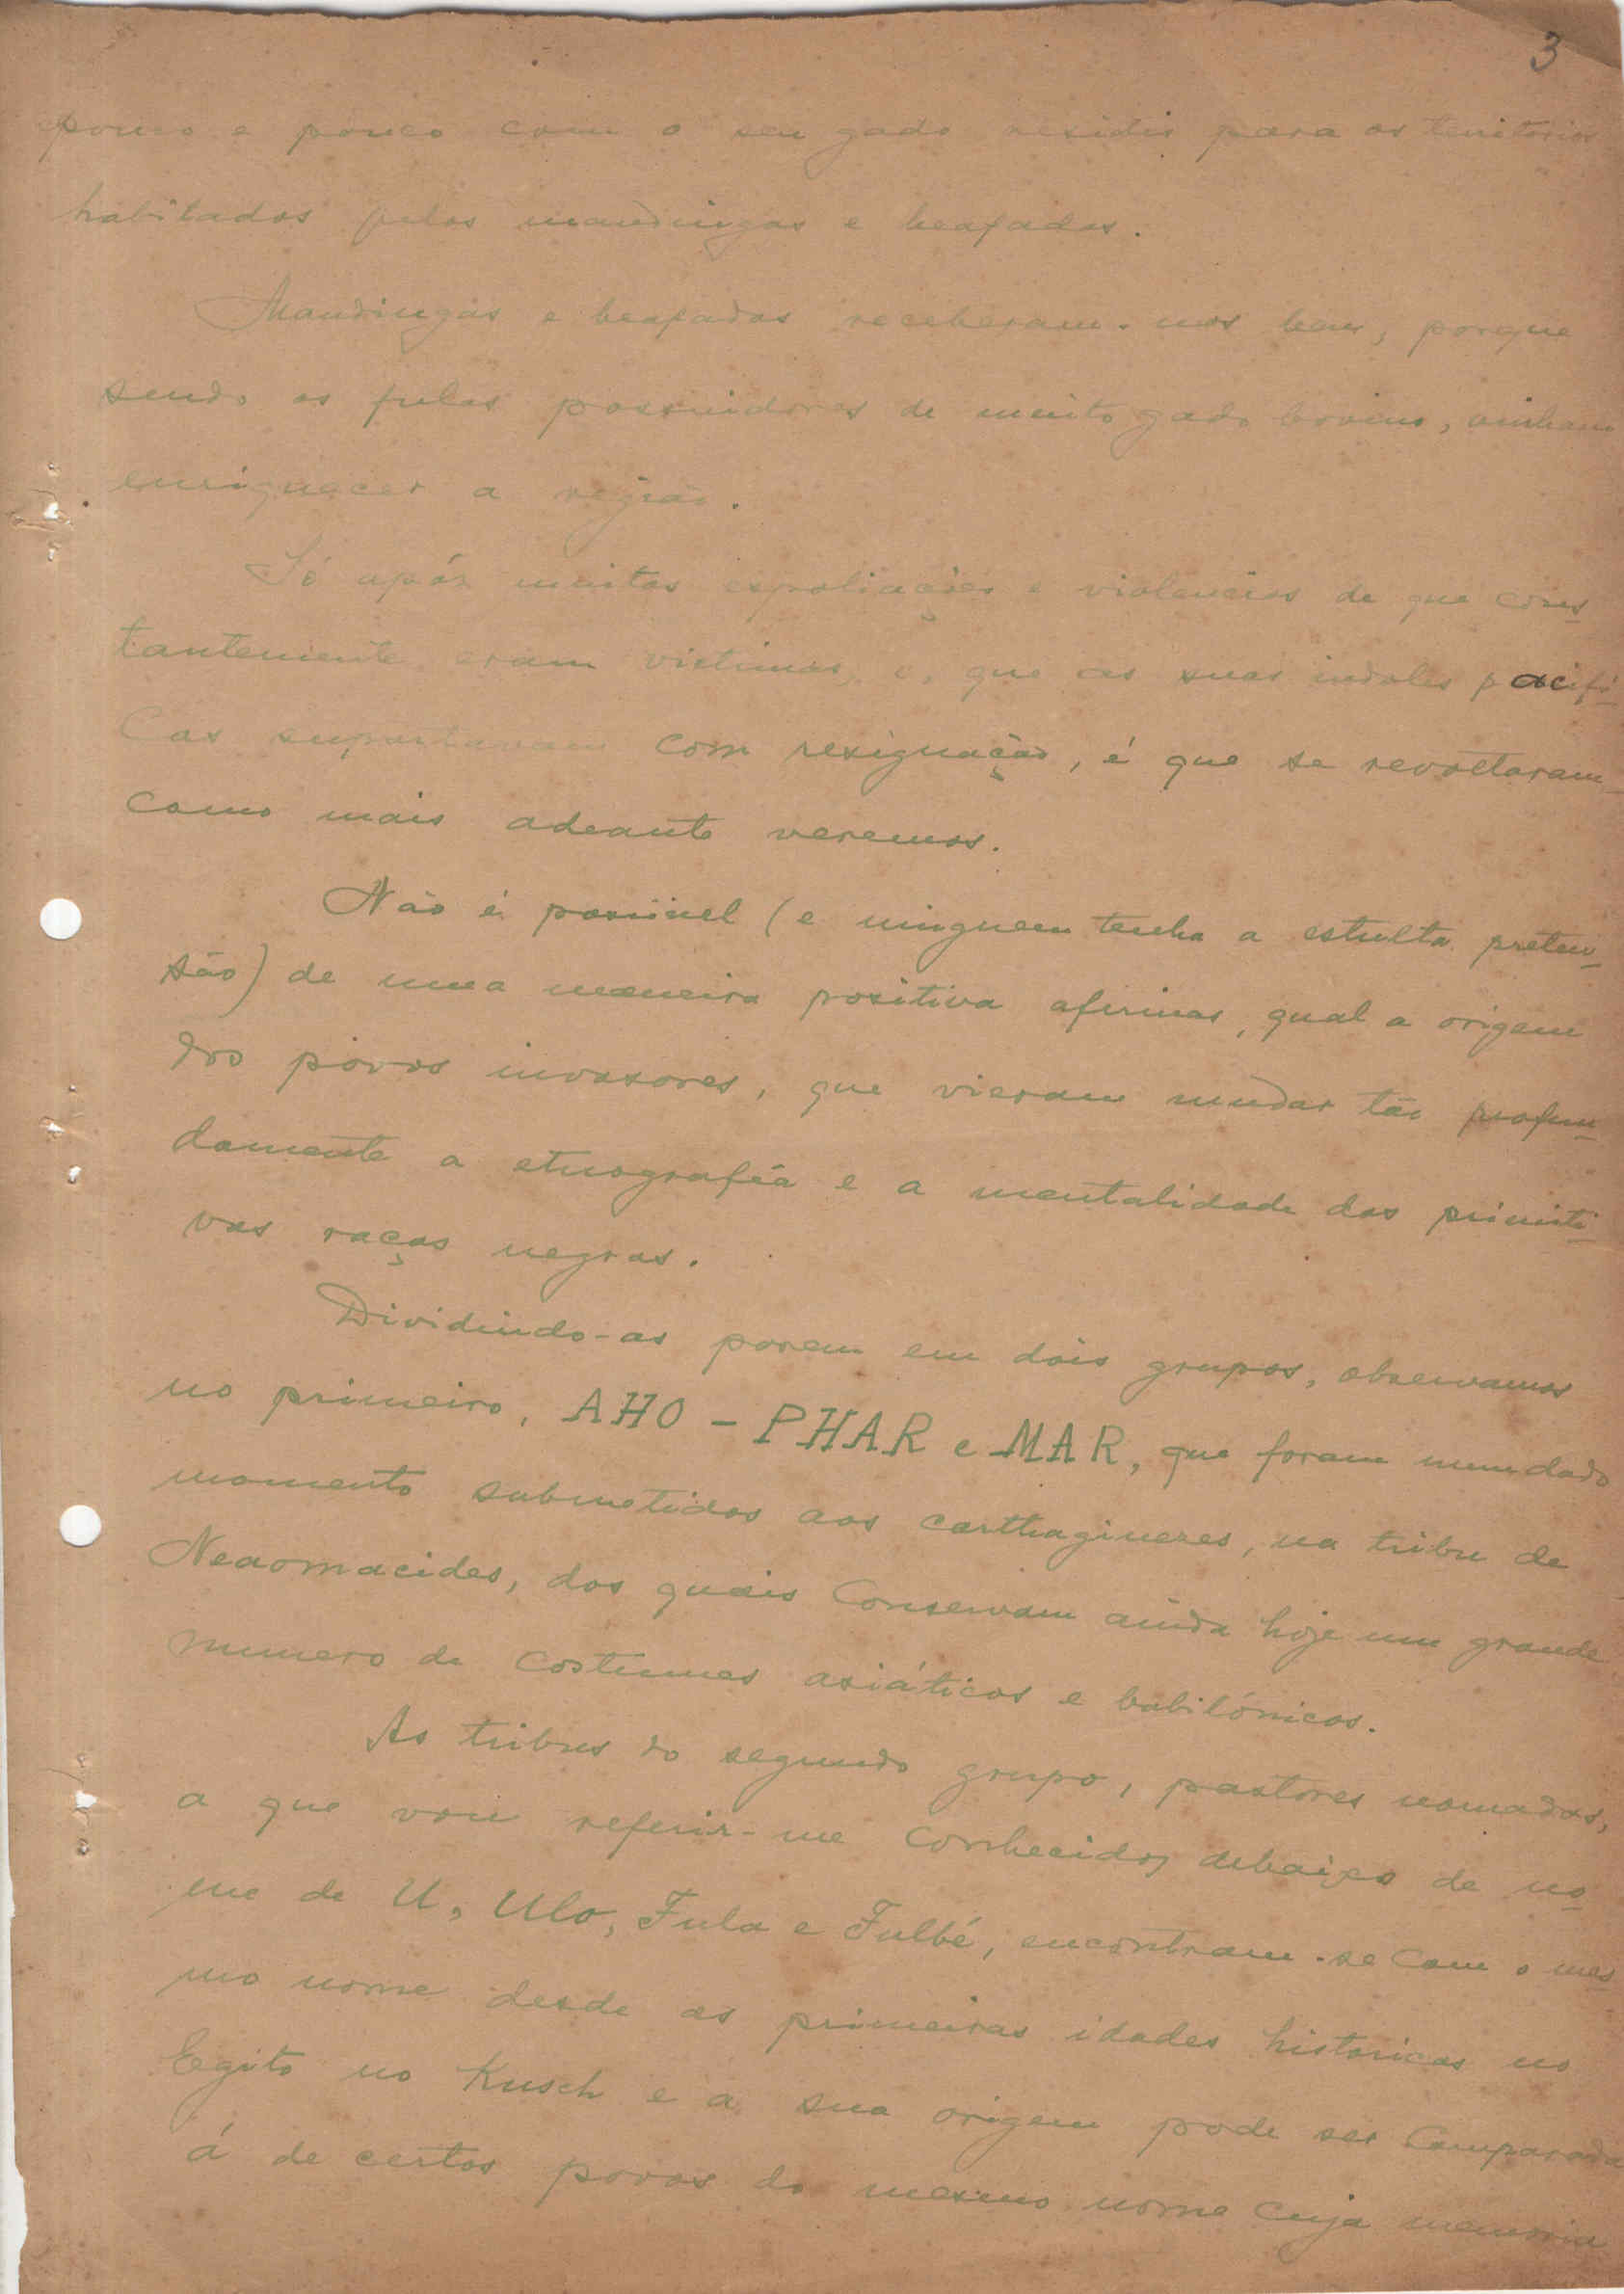 3
pouco e pouco com o seu gado residir para os territorios
habitados pelos mandingas e beafadas.
Mandingas e beafadas receberam-nos bem, porque
sendo os fulas possuidores de muito gado bovino, vinham
enriquecer a região.
Só após muitas espoliações e violencias de que cons
tantemente eram victimas e, que as suas indoles pacifi
cas suportavam com resignação, é que se revoltaram
como mais adeante veremos.
Não é possivel (e ninguem tenha a estulta preten
são) de uma maneira positiva afirmar, qual a origem
dos póvos invasores, que vieram mudar tão profun
damente a etnografia e a mentalidade das primiti
vas raças negras.
Dividindo-as porem em dois grupos, observamos
no primeiro, AHO - PHAR e MAR, que foram num dado
momento submetidos aos carthagineses, na tribu de
Neaomacides, dos quais conservam ainda hoje um grande
numero de costumes asiáticos e babilónicos.
As tribus do segundo grupo, pastores nomadas,
a que vou referir-me conhecidos debaixo de no
me de U, Ulo, Fula e Fulbé, encontram-se com o mes
mo nome desde as primeiras idades historicas no
Egito no Kusch e a sua origem pode ser comparada
á de certos povos do mesmo nome cuja memoria